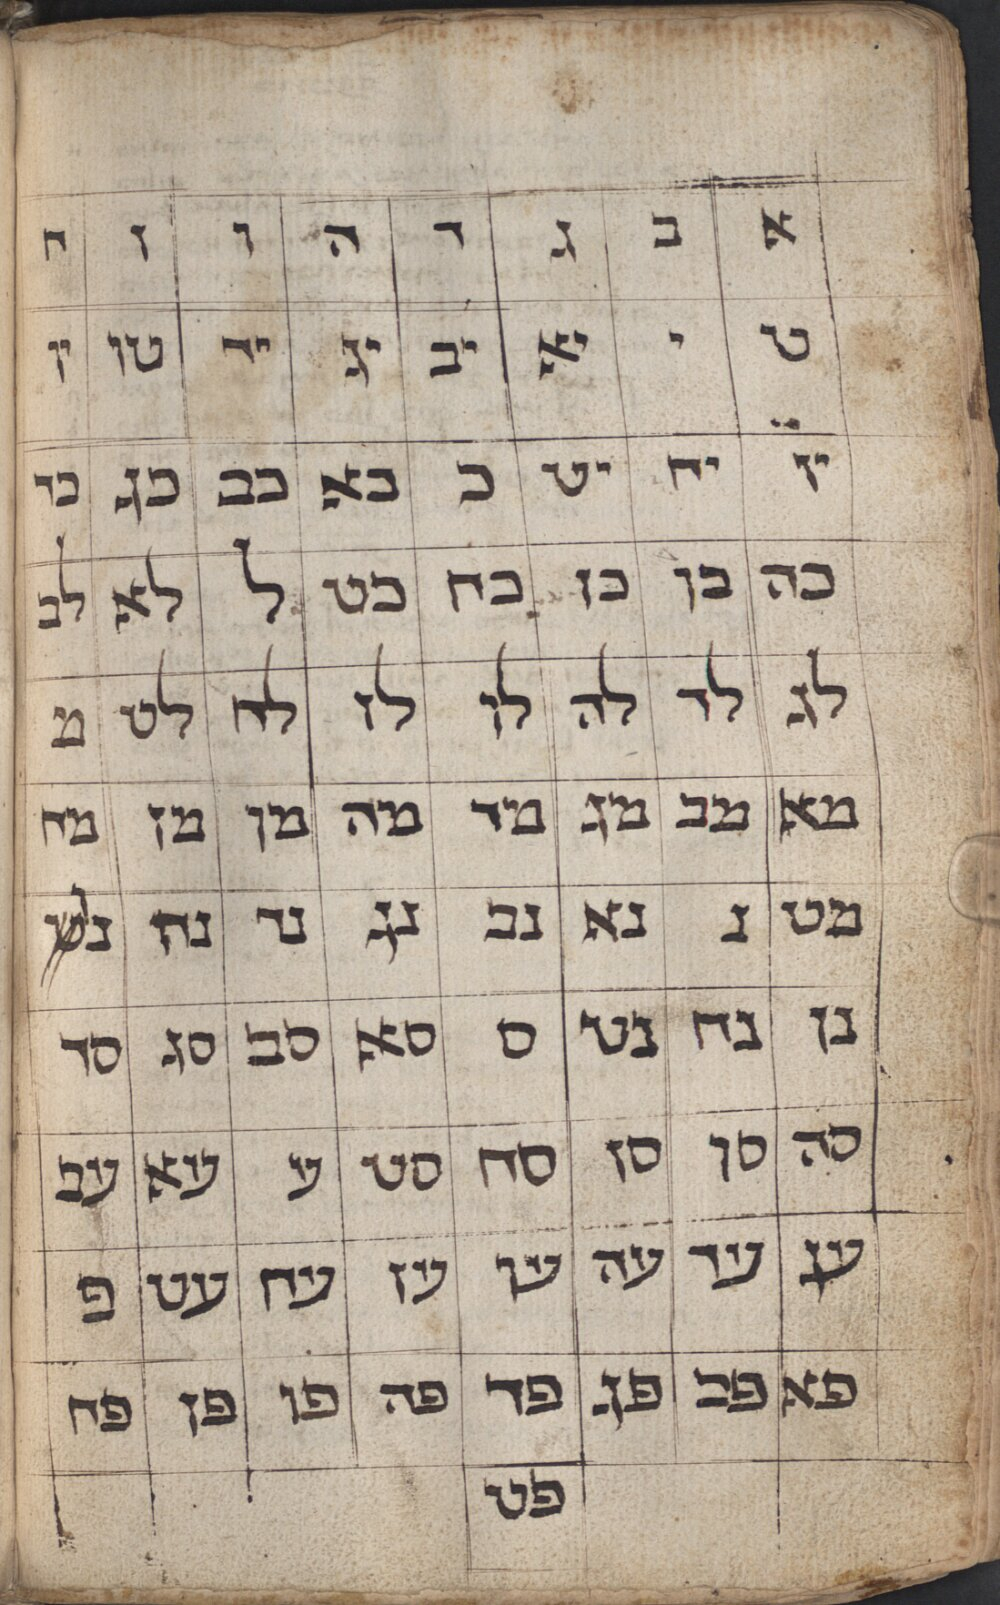 א ב ג ד ה ו ז ח
ט י יא יב יג יד טו יו
יז יח יט כ כא כב כג כד
כה כו כז כח כט ל לא לב
לג לד לה לו לז לח לט מ
מא מב מג מד מה מו מז מח
מט נ נא נב נג נד נה
נז נח נט ס סא סב סג סד
סה סו סז סח סט ע עא עב
עג עד עה עו עז עח עט פ
פא פב פג פד פה פו פז פח
פט